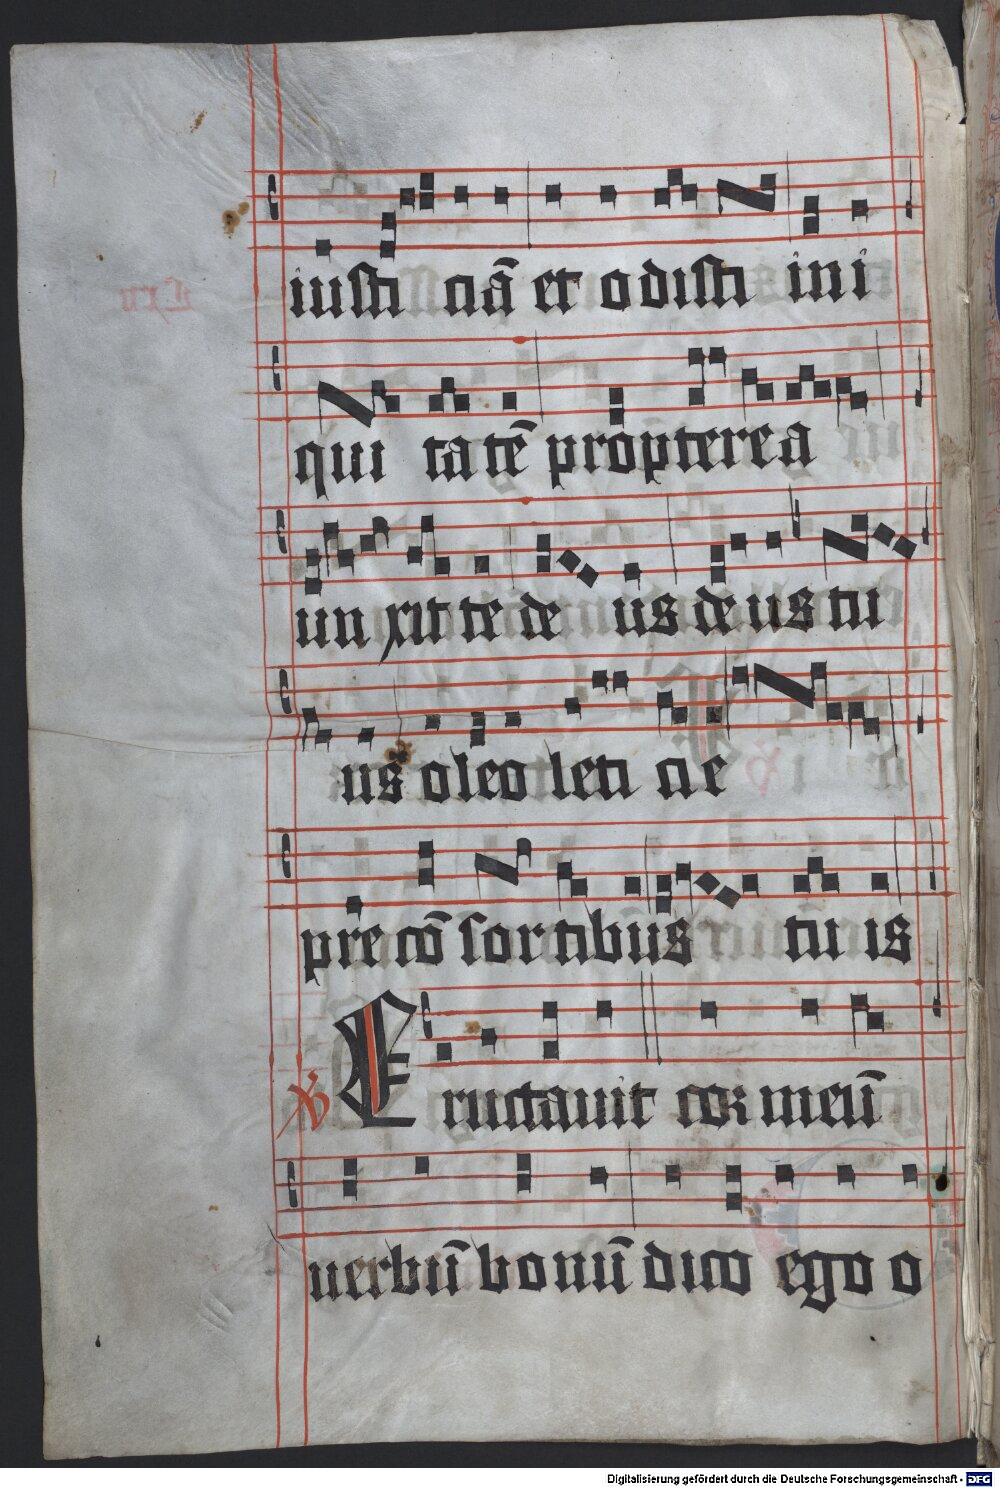 iusti ciā et odisti ini
qui ta tē propterea
un xit te de us de us tu
us oleo leti cie
pre cō sor tibus tu is
℣ Eructauit cor meū
uerbū bonū dico ego o
Digitalisierung gefördert durch die Deutsche Forschungsgemeinschaft - DFG